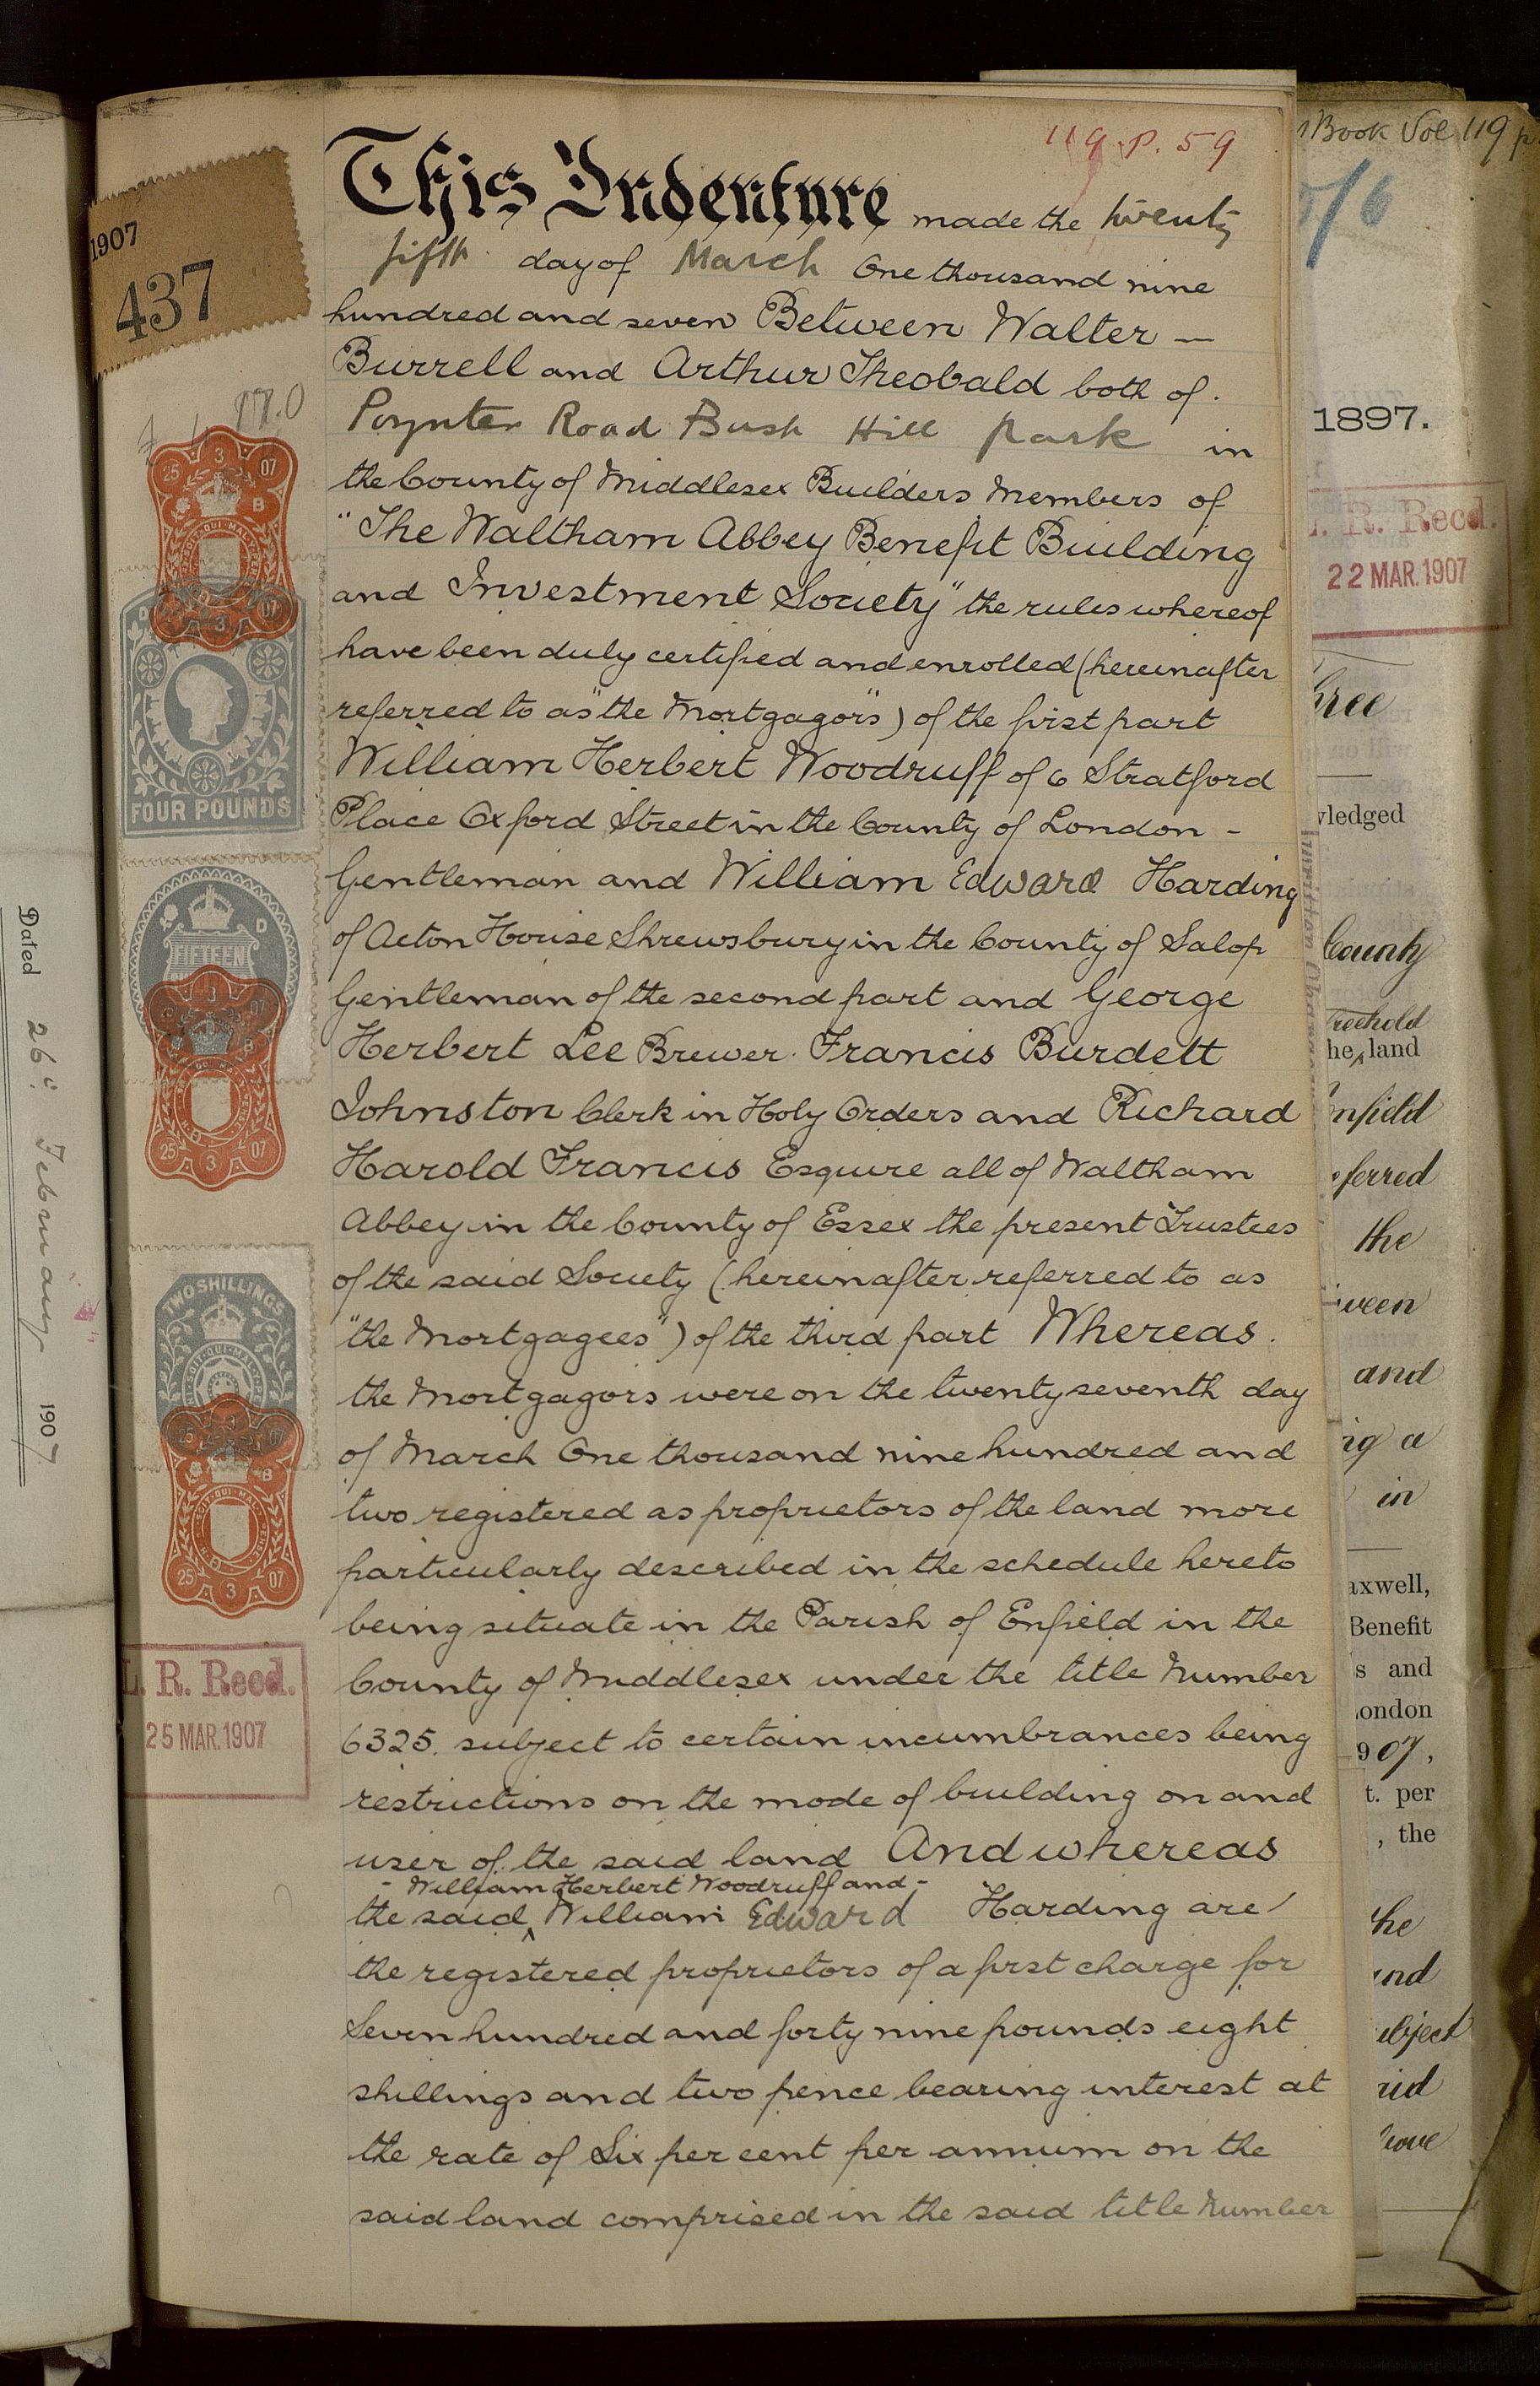 119 p. 59
This Indenture made the twenty
fifth day of March One thousand nine
hundred and seven Between Walter —
Burrell and Arthur Theobald both of.
Poynter Road Bush Hill Park in
the County of Middlesex Builders Members of
"The Waltham Abbey Benefit Building
and Investment Society" the rules whereof
have been duly certified and enrolled (hereinafter
referred to as "the Mortgagors") of the first part
William Herbert Woodruff of 6 Stratford
Place Oxford Street in the County of London -
Gentleman and William Edward Harding
of Acton House Shrewsbury in the County of Salop
Gentleman of the second part and George
Herbert Lee Brewer Francis Burdett
Johnston Clerk in Holy Orders and Richard
Harold Francis Esquire all of Waltham
Abbey in the County of Essex the present Trustees
of the said Society (hereinafter referred to as
"the Mortgagees") of the third part Whereas.
the Mortgagors were on the twenty seventh day
of March One thousand nine hundred and
two registered as proprietors of the land more
particularly described in the schedule hereto
being situate in the Parish of Enfield in the
County of Middlesex under the title Number
6325. subject to certain incumbrances being
restrictions on the mode of building on and
user of the said land And whereas
- William Herbert Woodruff and -
the said ^ William Edward Harding are
the registered proprietors of a first charge for
Seven hundred and forty nine pounds eight
shillings and two pence bearing interest at
the rate of Six per cent per annum on the
said land comprised in the said title Number
1907
437
25 3 07
B
3 07
FOUR POUNDS
D
FIFTEEN
3 07
B
25 3 07
TWO SHILLINGS
25 07
B
25 3 07
L. R. Recd.
25 MAR. 1907
Dated 26th February 1907
Book Vol 119 p
/6
1897.
L. R. Recd.
22 MAR. 1907
hree
wledged
County
Freehold
he ^ land
nfield
eferred
the
ween
and
ng a
in
axwell,
Benefit
s and
ondon
907,
t. per
, the
the
and
ubject